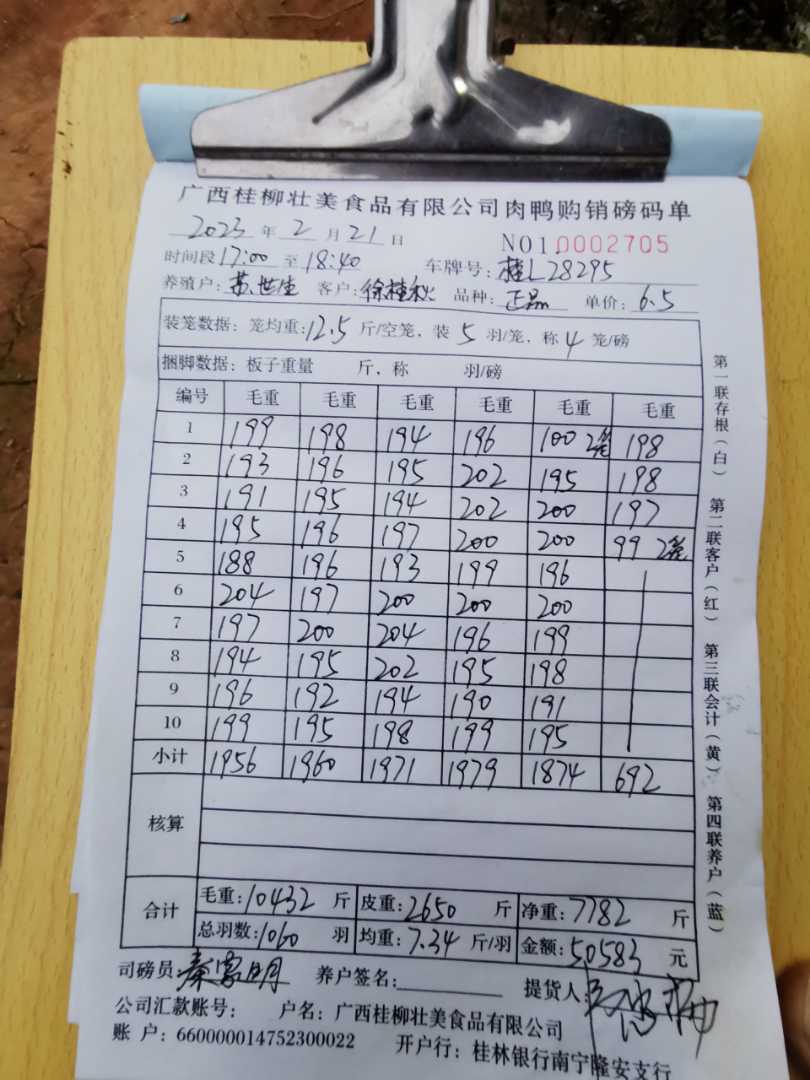 广西桂柳壮美食品有限公司肉鸭购销磅码单
2023 年 2 月 21 日 NO10002705
时间段 17:00 至 18:40 车牌号: 桂L28295
养殖户: 苏世生 客户: 徐桂秋 品种: 正品 单价: 6.5
装笼数据: 笼均重: 12.5 斤/空笼, 装 5 羽/笼, 称 4 笼/磅
捆脚数据: 板子重量 斤, 称 羽/磅
编号 毛重 毛重 毛重 毛重 毛重 毛重
1 199 198 194 196 100 2笼 198
2 193 196 195 202 195 198
3 191 195 194 202 200 197
4 195 196 197 200 200 99 2笼
5 188 196 193 199 196
6 204 197 200 200 200
7 197 200 204 196 199
8 194 195 202 195 198
9 196 192 194 190 191
10 199 195 198 199 195
小计 1956 1960 1971 1979 1874 692
核算
合计 毛重: 10432 斤 皮重: 2650 斤 净重: 7782 斤
总羽数: 1060 羽 均重: 7.34 斤/羽 金额: 50583 元
司磅员: 秦 明 养户签名: 提货人:
公司汇款账号: 户名: 广西桂柳壮美食品有限公司
账 户: 660000014752300022 开户行: 桂林银行南宁隆安支行
第一联存根(白) 第二联客户(红) 第三联会计(黄) 第四联养户(蓝)